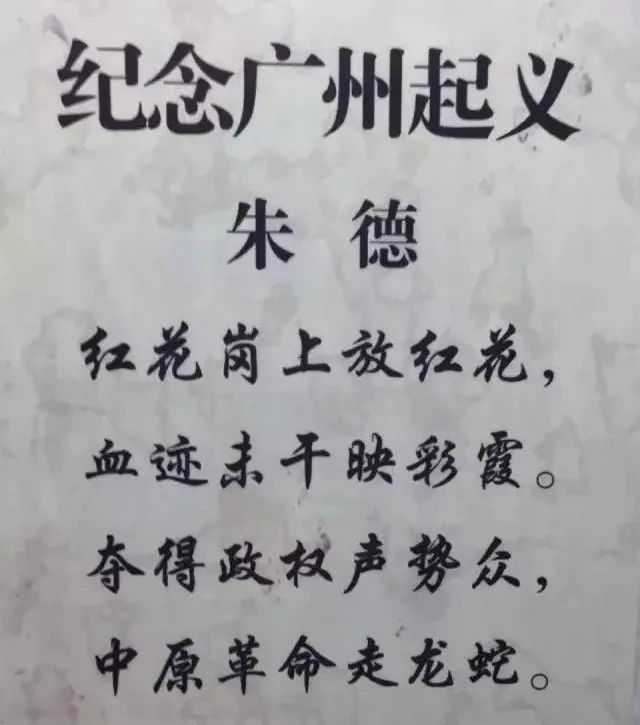 纪念广州起义
朱 德
红花岗上放红花，
血迹未干映彩霞。
夺得政权声势众，
中原革命走龙蛇。